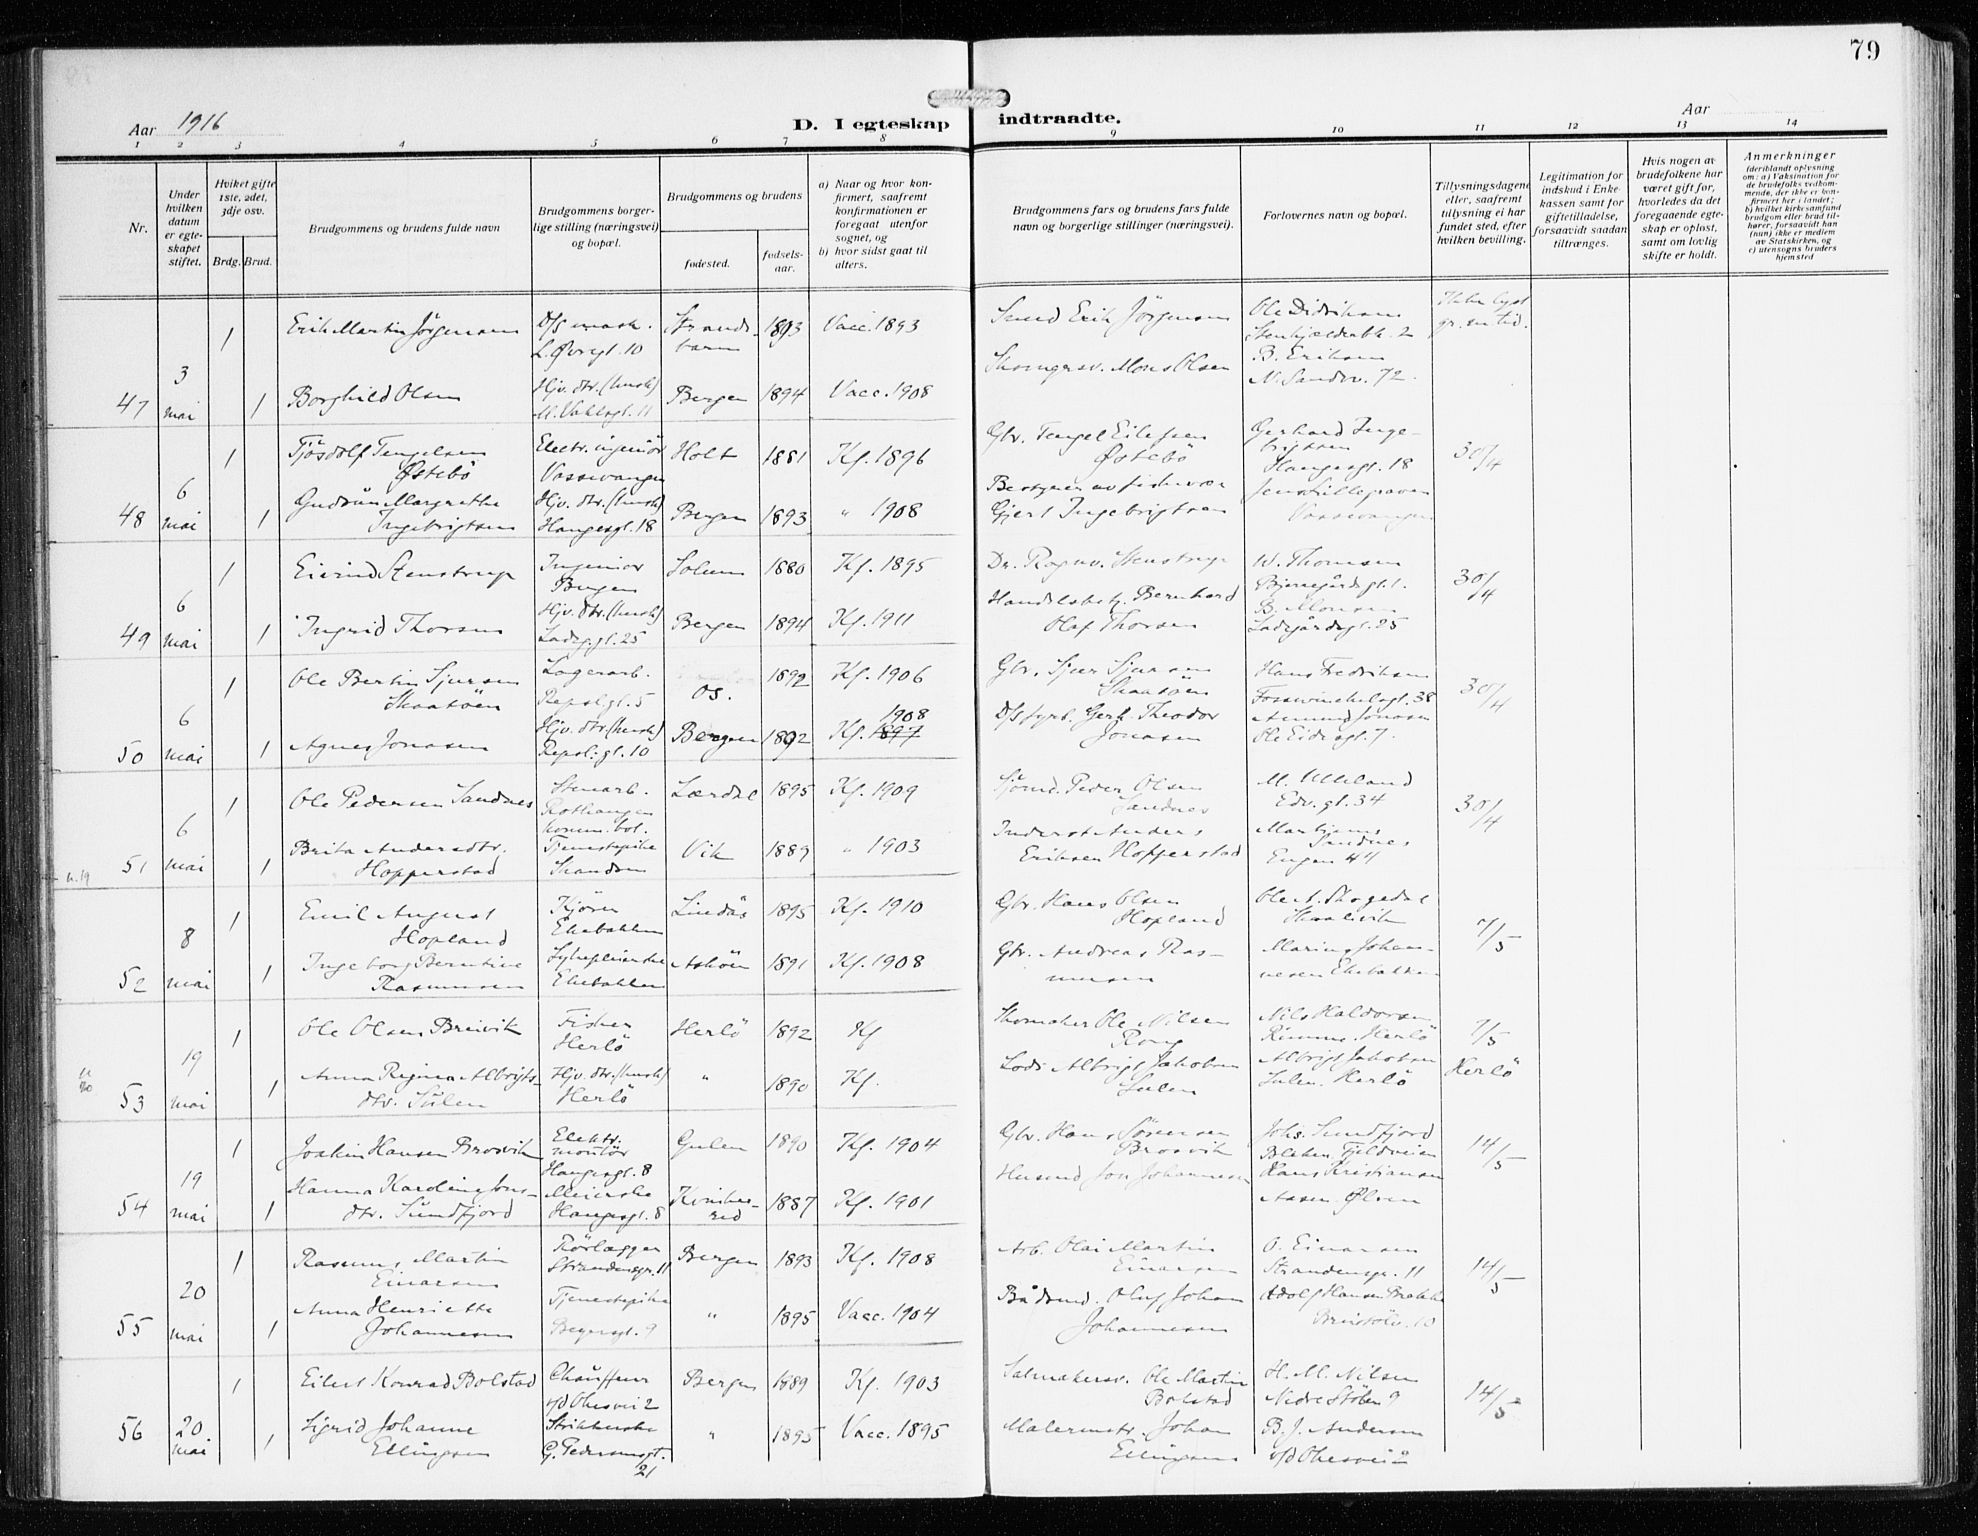 79
Aar 1916
D. I egteskap indtraadte.
Aar
1 2 3 4 5 6 7 8 9 10 11 12 13 14
Nr.
Under hvilken datum er egteskapet stiftet.
Hviket gifte 1ste, 2det, 3dje osv.
Brdg. Brud.
Brudgommens og brudens fulde navn
Brudgommens borgerlige stilling (næringsvei) og bopæl.
Brudgommens og brudens
fødested.
fødselsaar.
a) Naar og hvor konfirmert, saafremt konfirmationen er foregaat utenfor sognet, og
b) hvor sidst gaat til alters.
Brudgommens fars og brudens fars fulde navn og borgerlige stillinger (næringsvei).
Forlovernes navn og bopæl.
Tillysningsdagene eller, saafremt tillysning ei har fundet sted, efter hvilken bevilling.
Legitimation for indskud i Enkekassen samt for giftetilladelse, forsaavidt saadan tiltrænges.
Hvis nogen av brudefolkene har været gift før, hvorledes da det foregaaende egteskap er opløst, samt om lovlig skifte er holdt.
Anmerkninger
(deriblandt oplysning om: a) Vaksination for de brudefolks vedkommende, der ikke er konfirmert her i landet; b) hvilket kirkesamfund brudgom eller brud tilhører, forsaavidt han (hun) ikke er medlem av Statskirken, og c) utensogns bruders hjemsted
47 3 mai
1 Erik Martin Jørgensen D/S mask. L. Øvregt. 10 Strandbarm 1893 Vacc. 1893 Smed Erik Jörgensen Ole Didriksen
1 Borghild Olsen Hjv. dtr. (husl.) Bergen 1894 Vacc. 1908 Mons Olsen B. Eriksen N. Sandv. 72
48 6 mai
1 Tjösdolf Tengelsen Østebö Electr. ingeniör Vossevangen Holt 1881 Kf. 1896 Gbr. Tengel Eilefsen Østebö Gerhard Ingebrigtsen Haugesgt. 18 30/4
1 Gudrun Margrethe Ingebrigtsen Hjv. dtr. (husl.) Haugesgt. 18 Bergen 1893 " 1908 Bestyrer av fiskevær Gjert Ingebrigtsen Jens Lillegraven Vossevangen
49 6 mai
1 Eivind Stenstrup Ingeniør Bergen Solum 1880 Kf. 1895 Dr. Ragnv. Stenstrup W. Thomsen Bjørnegårdsgt. 1. 30/4
1 Ingrid Thorsen Hjv. dtr. (husl.) Ladeg.gt. 25 Bergen 1894 Kf. 1911 Handelsbet. Bernhard Olaf Thorsen B. Monsen Ladegårdsgt. 25
50 6 mai
1 Ole Bertin Sjursen Skaatöen Lagerarb. Repsl.gt. 5 Os. 1892 Kf. 1906 Gbr. Sjur Sjursen Skaatöen Hans Fredriksen Fosswinckelsgt. 38 30/4
1 Agnes Jonasen Hjv. dtr. (husl.) Repsl.gt. 10 Bergen 1892 Kf. 1897 1908 D/S fyrb. Gerh. Theodor Jonasen Amund Jonasen Ole Eidesgt. 7.
51 6 mai
1 Ole Pedersen Sandnes Stenarb. Rothaugen komm. bol. Lærdal 1895 Kf. 1909 Sjömd. Peder Olsen Sandnes M. Ulleland Edv. gt. 34 30/4
1 Brita Andersdtr. Hopperstad Tjenestepike Skansen Vik 1889 " 1903 Inderst Anders Eriksen Hopperstad Sandnes Engen 44
52 8 mai
1 Emil August Hopland Kjörer Ekebakken Lindås 1895 Kf. 1910 Gbr. Hans Olsen Hopland Skaalevik 7/5
1 Ingeborg Berntine Rasmussen Sykepleierske Ekebakken Askøen 1891 Kf. 1908 Gbr. Andreas Rasmussen Marius Johannesen Ekebakken
53 19 mai
1 Ole Olsen Breivik Fisker Herlö Herlö 1892 Kf Skomaker Ole Nilsen Rong Nils Haldorsen Herlö 7/5
1 Anna Regina Albrigtsdtr. Sulen Hjv. dtr. (husl.) Herlö " 1890 Kf. Lods Albrigt Jakobsen Sulen Albrigt Jakobsen Sulen. Herlö Herlö
54 19 mai
1 Joakim Hansen Brosvik Elektr. montör Haugesgt. 8 Gulen 1890 Kf. 1904 Gbr. Hans Sörensen Brosvik Johs. Sundfjord Fjeldveien 14/5
1 Hanna Kardine Jonsdtr. Sundfjord Meierske Haugesgt. 8 Kvinherred 1887 Kf. 1901 Husmd Jon Johannesen Hans Kristiansen Aasen. Ølven
55 20 mai
1 Rasmus Martin Einarsen Rörlægger Strandensgr. 11 Bergen 1893 Kf. 1908 Arb. Olai Martin Einarsen O. Einarsen Strandensgr. 11 14/5
1 Anna Henriette Johannesen Tjenestepike " 1895 Vacc. 1904 Bådsmd. Oluf Johan Johannesen Adolf Hansen Brekke
56 20. mai
1 Eilert Konrad Bolstad Chåufför Bergen 1889 Kf. 1903 Salmakersv. Ole Martin Bolstad H. M. Nilsen Nedre Stölen 9 14/5
1 Sigrid Johanne Ellingsen Strikkerske G. Pedersensgt. 21 " 1895 Vacc. 1895 Malermstr. Johan Ellingsen B. J. Andersen